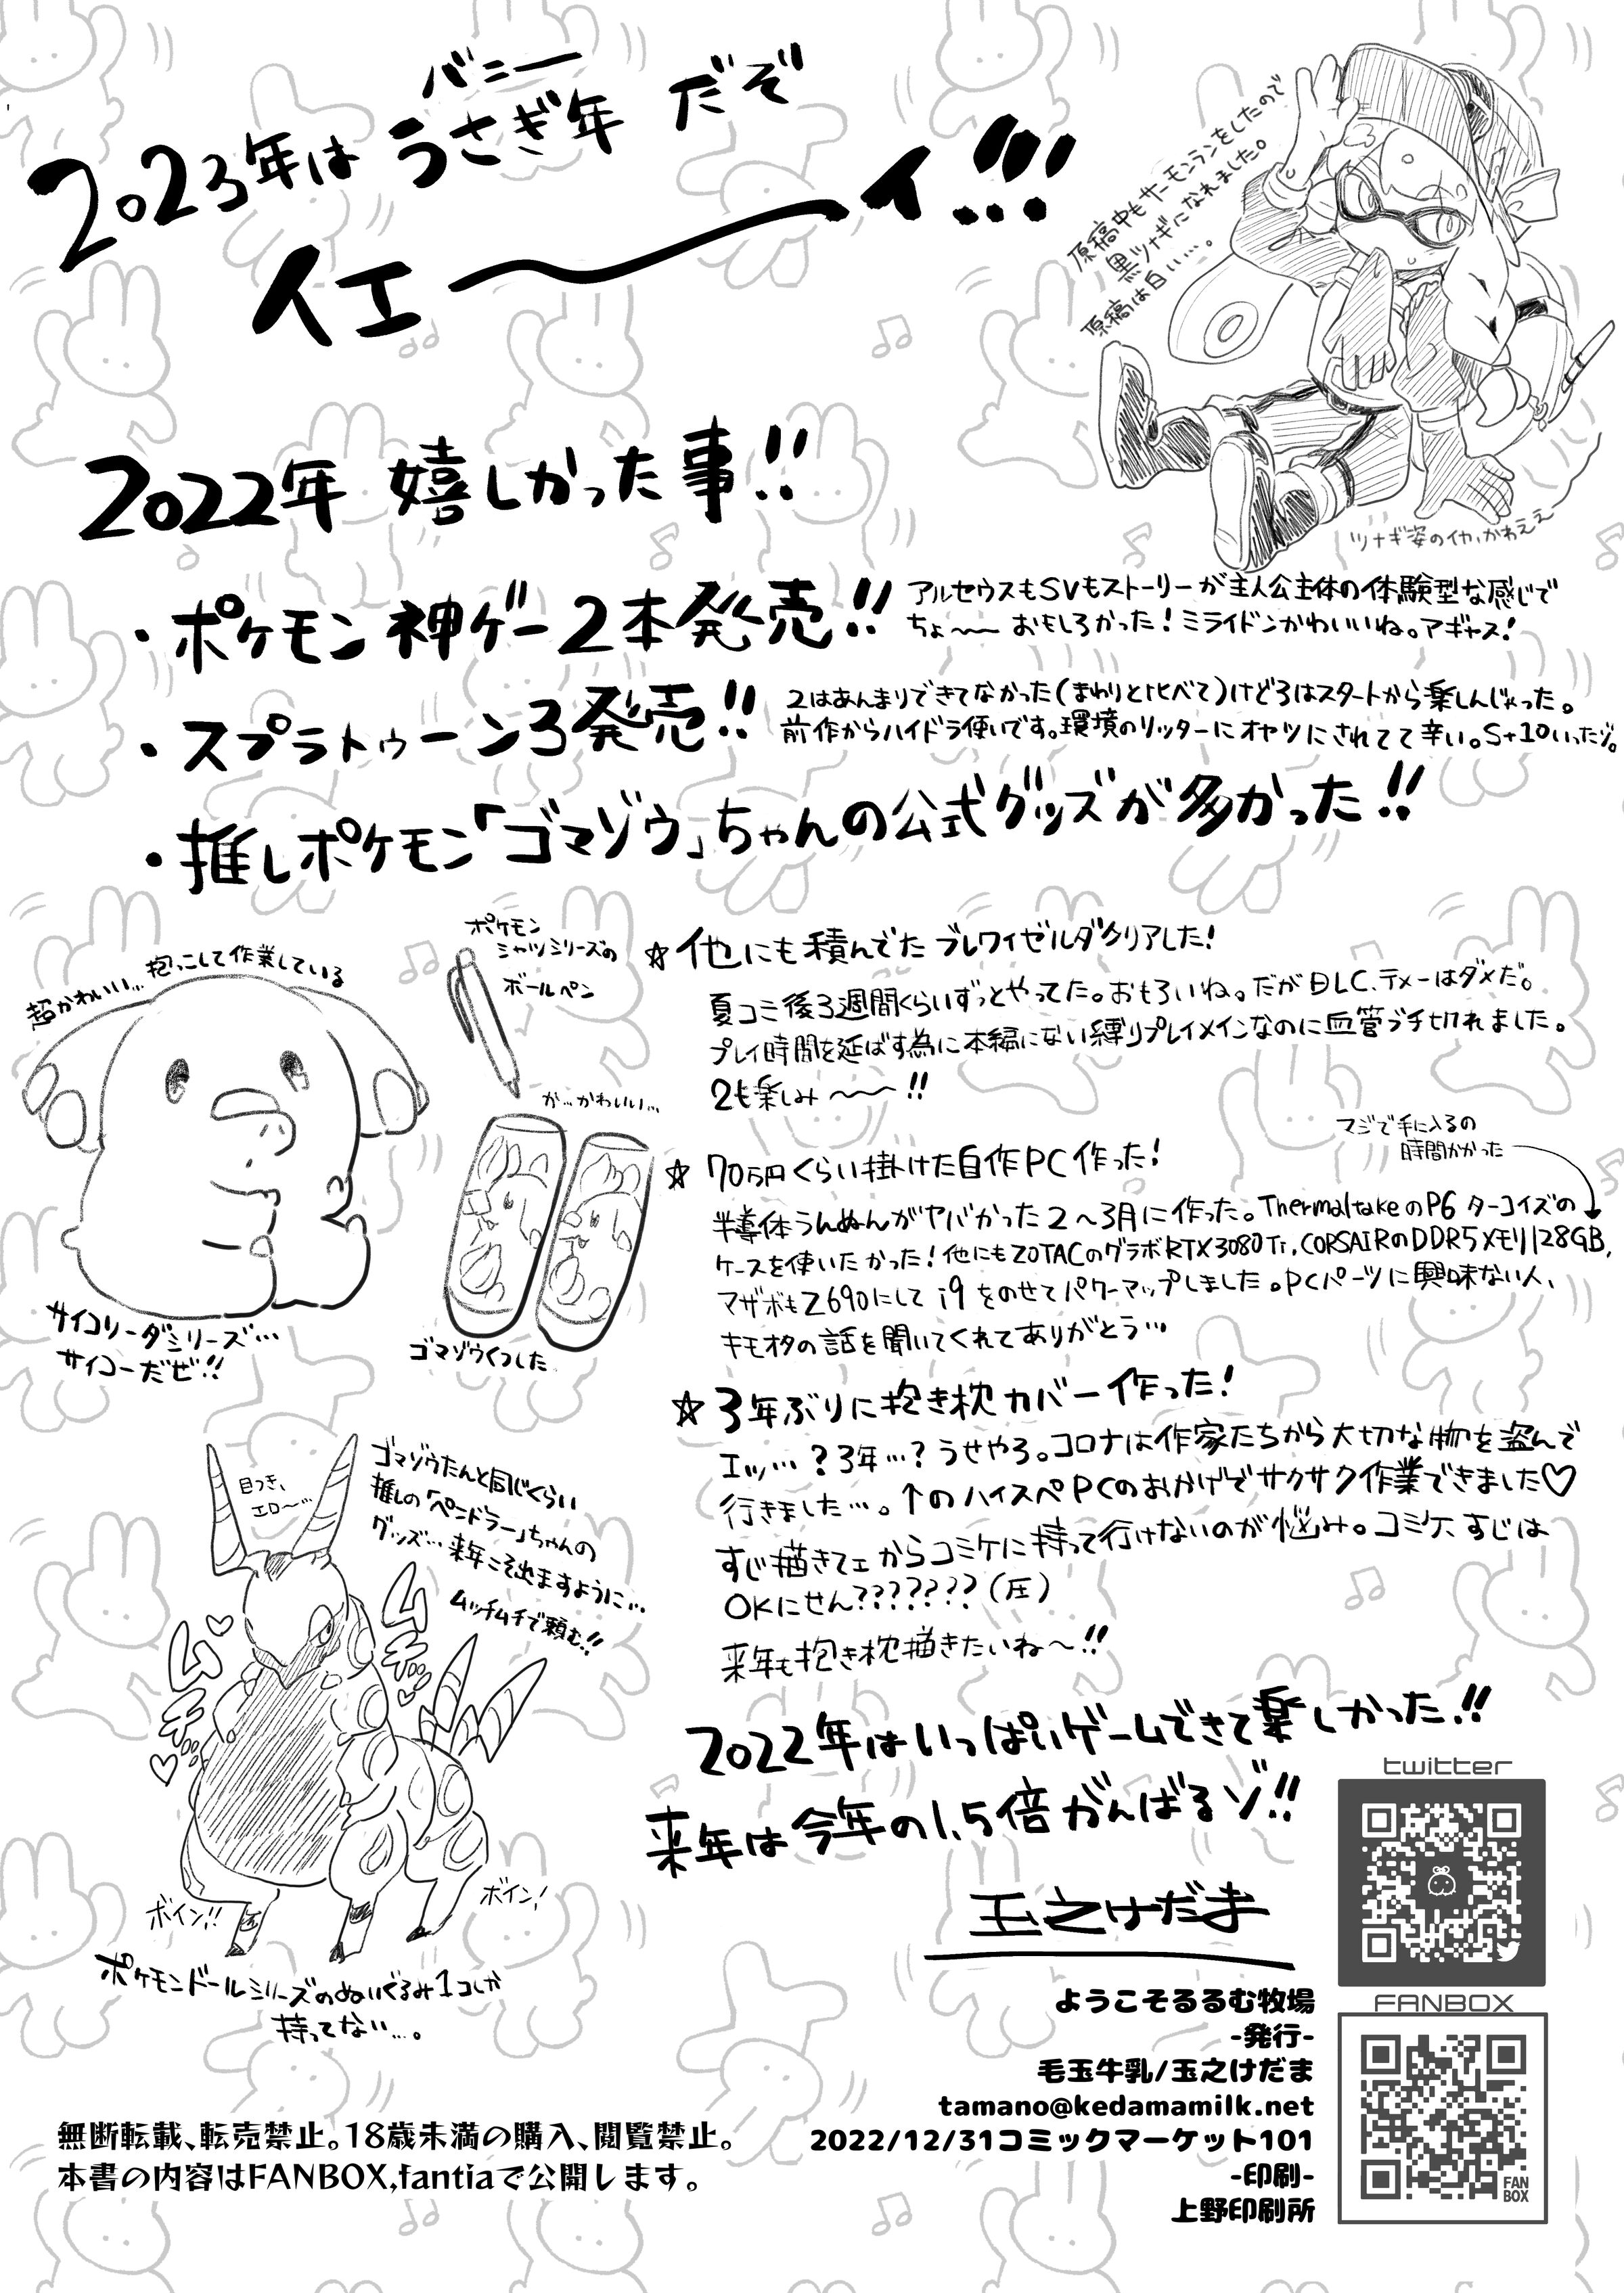 バニー
2023年はうさぎ年だぞ
イエ〜〜イ!!!
原稿中もサーモンランをしたので
黒ツナギになれました。
原稿は白い…。
ツナギ姿のイカ、かわええ
2022年 嬉しかった事!!
・ポケモン神ゲー2本発売!!
アルセウスもSVもストーリーが主人公主体の体験型な感じで
ちょ〜〜おもしろかった！ミライドンかわいいね。アギャス！
・スプラトゥーン3発売!!
2はあんまりできてなかった(まわりと比べて)けど3はスタートから楽しんじゃった。
前作からハイドラ使いです。環境のリッターにオヤツにされてて辛い。S+10いったゾ。
・推しポケモン「ゴマゾウ」ちゃんの公式グッズが多かった!!
超かわいい…抱っこして作業している
サイコソーダシリーズ…
サイコーだぜ!!
ポケモン
シャツシリーズの
ボールペン
か…かわいい…
ゴマゾウくつした
☆他にも積んでたブレワイゼルダクリアした！
夏コミ後3週間くらいずっとやってた。おもろいね。だがDLC、テメーはダメだ。
プレイ時間を延ばす為に本編にない縛りプレイメインなのに血管ブチ切れました。
2も楽しみ〜〜!!
☆70万円くらい掛けた自作PC作った！
マジで手に入るの
時間かかった
半導体うんぬんがヤバかった2〜3月に作った。ThermaltakeのP6 ターコイズの
ケースを使いたかった！他にもZOTACのグラボRTX3080Ti、CORSAIRのDDR5メモリ128GB、
マザボもZ690にしてi9をのせてパワーマップしました。PCパーツに興味ない人、
キモオタの話を聞いてくれてありがとう…
☆3年ぶりに抱き枕カバー作った！
エッ…？3年…？うせやろ。コロナは作家たちから大切な物を盗んで
行きました…。↑のハイスペPCのおかげでサクサク作業できました♡
すじ描きてェからコミケに持って行けないのが悩み。コミケ、すじは
OKにせん???????(圧)
来年も抱き枕描きたいね〜!!
目つき、
エロ〜…
ゴマゾウたんと同じくらい
推しの「ペンドラー」ちゃんの
グッズ…来年こそ出ますように…
ムッチムチで頼む!!
ムチ…♡
ムチッ♡
ボイン!!
ボイン！
ポケモンドールシリーズのぬいぐるみ1コしか
持ってない…。
2022年はいっぱいゲームできて楽しかった!!
来年は今年の1.5倍がんばるゾ!!
玉之けだま
twitter
FANBOX
FAN
BOX
ようこそるるむ牧場
-発行-
毛玉牛乳/玉之けだま
tamano@kedamamilk.net
2022/12/31コミックマーケット101
-印刷-
上野印刷所
無断転載、転売禁止。18歳未満の購入、閲覧禁止。
本書の内容はFANBOX,fantiaで公開します。